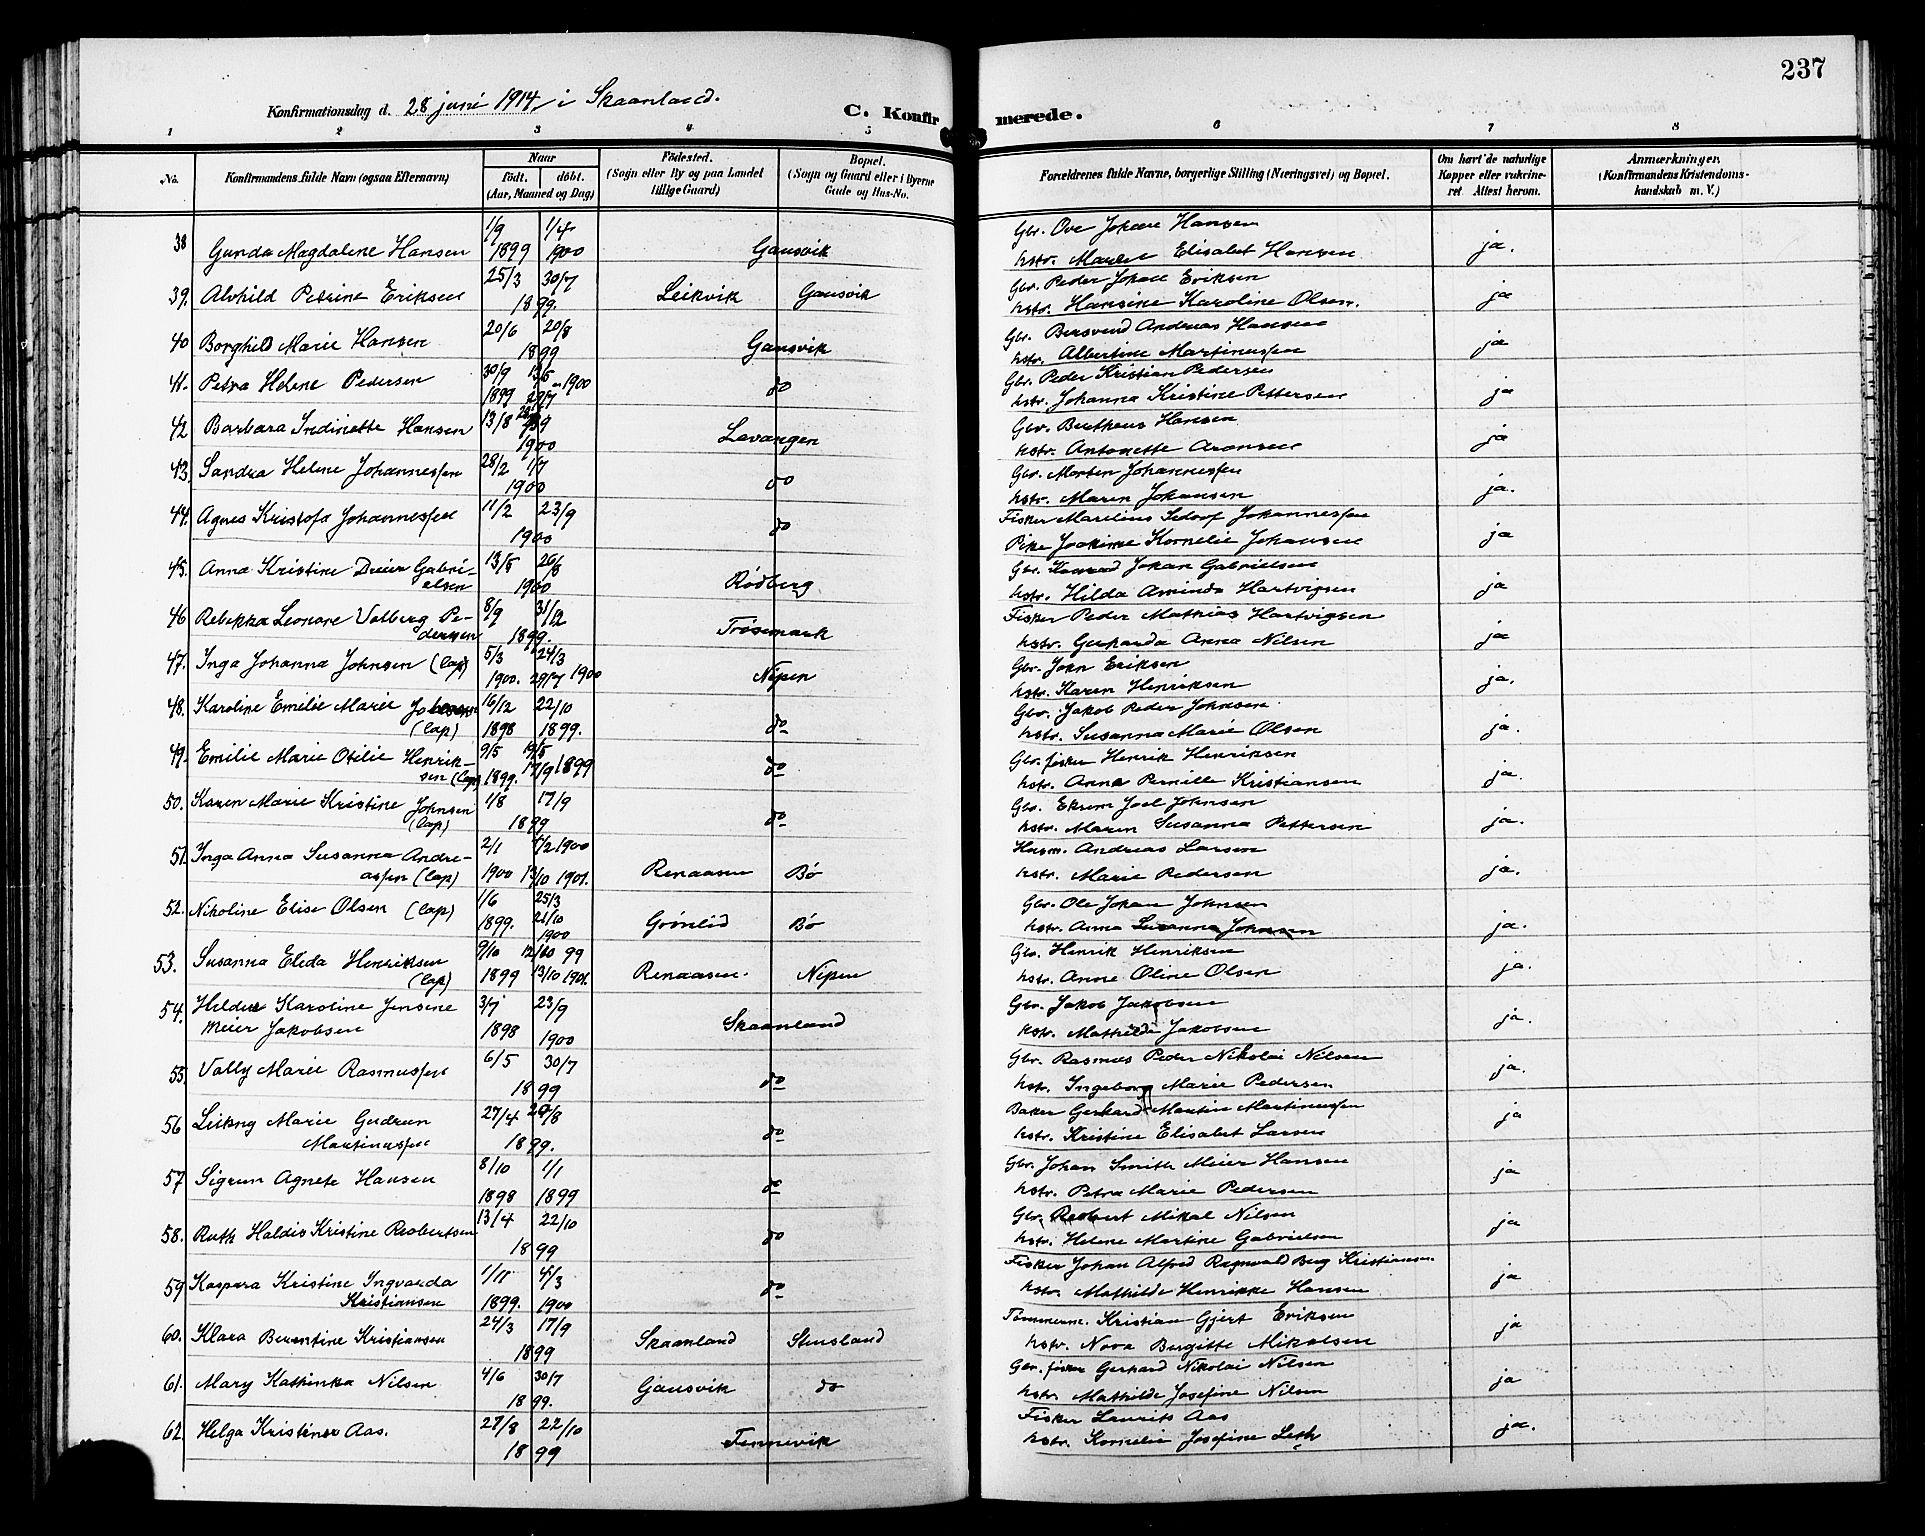 237
Konfirmationsdag d. 28 juni 1914 i Skaanland.
C. Konfirmerede.
1 2 3 4 5 6 7 8
No.
Konfirmandens fulde Navn (ogsaa Efternavn)
Naar
födt. döbt.
(Aar, Maaned og Dag)
Födested.
(Sogn eller By og paa Landet
tillige Gaard)
Bopæl.
(Sogn og Gaard eller i Byerne
Gade og Hus-No.
Forældrenes fulde Navne, borgerlige Stilling (Næringsvei) og Bopæl.
Om havt de naturlige
Kopper eller vakcine-
ret Attest herom.
Anmærkninger.
(Konfirmandens Kristendoms-
kundskab m. V.)
38 Gunda Magdalene Hansen 1/9 1899 1/4 1900 Gausvik Gbr. Ove Johan Hansen
hstr. Elisabet Hansen ja.
39. Alvhild Petrine Eriksen 25/3 30/7 1899. Leikvik Gausvik Gbr. Peder Johan Eriksen
hstr. Hansine Karoline Olsen. ja
40 Borghild Marie Hansen 20/6 20/8 1899 Gausvik Gbr. Andreas Hansen
hstr. Albertine Martinussen ja
41. Petra Helene Pedersen 30/9 1899 1900 do Gbr. Peder Kristian Pedersen
hstr. Johanna Kristine Pettersen ja
42 Barbara Indinette Hansen 13/8 1900 Lavangen Gbr. Hansen
hstr. Antonette Aronsen ja
43. Sandra Helene Johannessen 28/2 1/7 1900 do Gbr. Morten Johannessen
hstr. Maren Johansen ja.
44. Agnes Kristofa Johannessen 11/2 23/9 1900 do Fisker Johannessen
Pike Joakime Kornelie Johansen ja
45. Anna Kristine Dreier Gabri-
elsen 13/5 26/8 1900 Rødberg Gbr. Johan Gabrielsen
hstr. Hilda Aminda Hartvigsen ja
46 Rebekka Leonore Valberg Pe-
dersen 8/9 31/12 1899. Trøsemark Fisker Peder Mathias Hartvigsen
hstr. Gerharda Anna Nilsen ja
47. Inga Johanna Johnsen (Lap) 5/3 1900. 24/3 29/7 1900 Nipen Gbr. John Eriksen
hstr. Karen Henriksen ja.
48. Karoline Emilie Marie
(Lap) 16/12 1898 22/10 1899. do Gbr. Jakob Peder Johnsen
hstr. Susanna Marie Olsen ja.
49. Emilie Marie Otilie Henrik-
sen (Lap) 9/5 1899. 19/5 17/9 1899 do Gbr. fisker Henrik Henriksen
hstr. Anna Pernille Kristiansen ja.
50. Karen Marie Kristine Johnsen
(Lap) 1/8 17/9 1899 do Gbr. Joel Johnsen
hstr. Maren Susanna Pettersen ja.
51. Inga Anna Susanna Andre-
assen (Lap) 2/1 1900 1900 13/10 1901. Renaasen Bø Husm. Andreas Larsen
hstr. Marie Pedersen ja.
52. Nikoline Elise Olsen (Lap) 1/6 1899. 25/3 21/10 1900 Grønlid Bø Gbr. Ole Johan Johnsen
hstr. Anna Susanna Johnsen ja.
53. Susanna Elida Henriksen
(Lap) 9/10 1899 99 13/10 1901. Renaasen. Nipen Gbr. Henrik Henriksen
hstr. Anne Oline Olsen ja.
54. Karoline Jensine
Meier Jakobsen 3/7 1898 23/9 1900 Skaanland Gbr. Jakob Jakobsen
hstr. Mathilde Jakobsen ja.
55. Vally Marie Rasmussen 6/5 30/7 1899 do Gbr. Rasmus Peder Nikolai Nilsen
hstr. Ingeborg Marie Pedersen ja.
56 Leikny Marie Gudrun
Martinussen 27/4 20/8 1899. do Baker Gerhard Martin Martinussen
hstr. Kristine Elisabet Larsen ja
57 Sigrun Agnete Hansen 8/10 1898 1/1 1899 do Gbr. Johan Smith Meier Hansen
hstr. Petra Marie Pedersen ja
58. Ruth Haldis Kristine Robertsen 13/4 22/10 1899 do Gbr. Robert Mikal Nilsen
hstr. Helene Martine Gabrielsen ja
59 Kaspara Kristine Ingvarda
Kristiansen 1/11 1899. 4/3 1900 do Fisker Johan Alfred Ragnvald Berg Kristiansen
hstr. Mathilde Henrikke Hansen ja
60. Klara Berentine Kristiansen 24/3 17/9 1899 Skaanland Stensland Tømmerm. Kristian Gjert Eriksen
hstr. Nora Bergitte Mikalsen ja
61. Mary Kathinka Nilsen 4/6 30/7 1899. Gausvik do Gbr. fisker Gerhard Nikolai Nilsen
hstr. Mathilde Josefine Nilsen ja
62. Helga Kristine Aas. 27/8 22/10 1899 Tennevik Fisker Laurits Aas
hstr. Kornelie Josefine Leth ja.